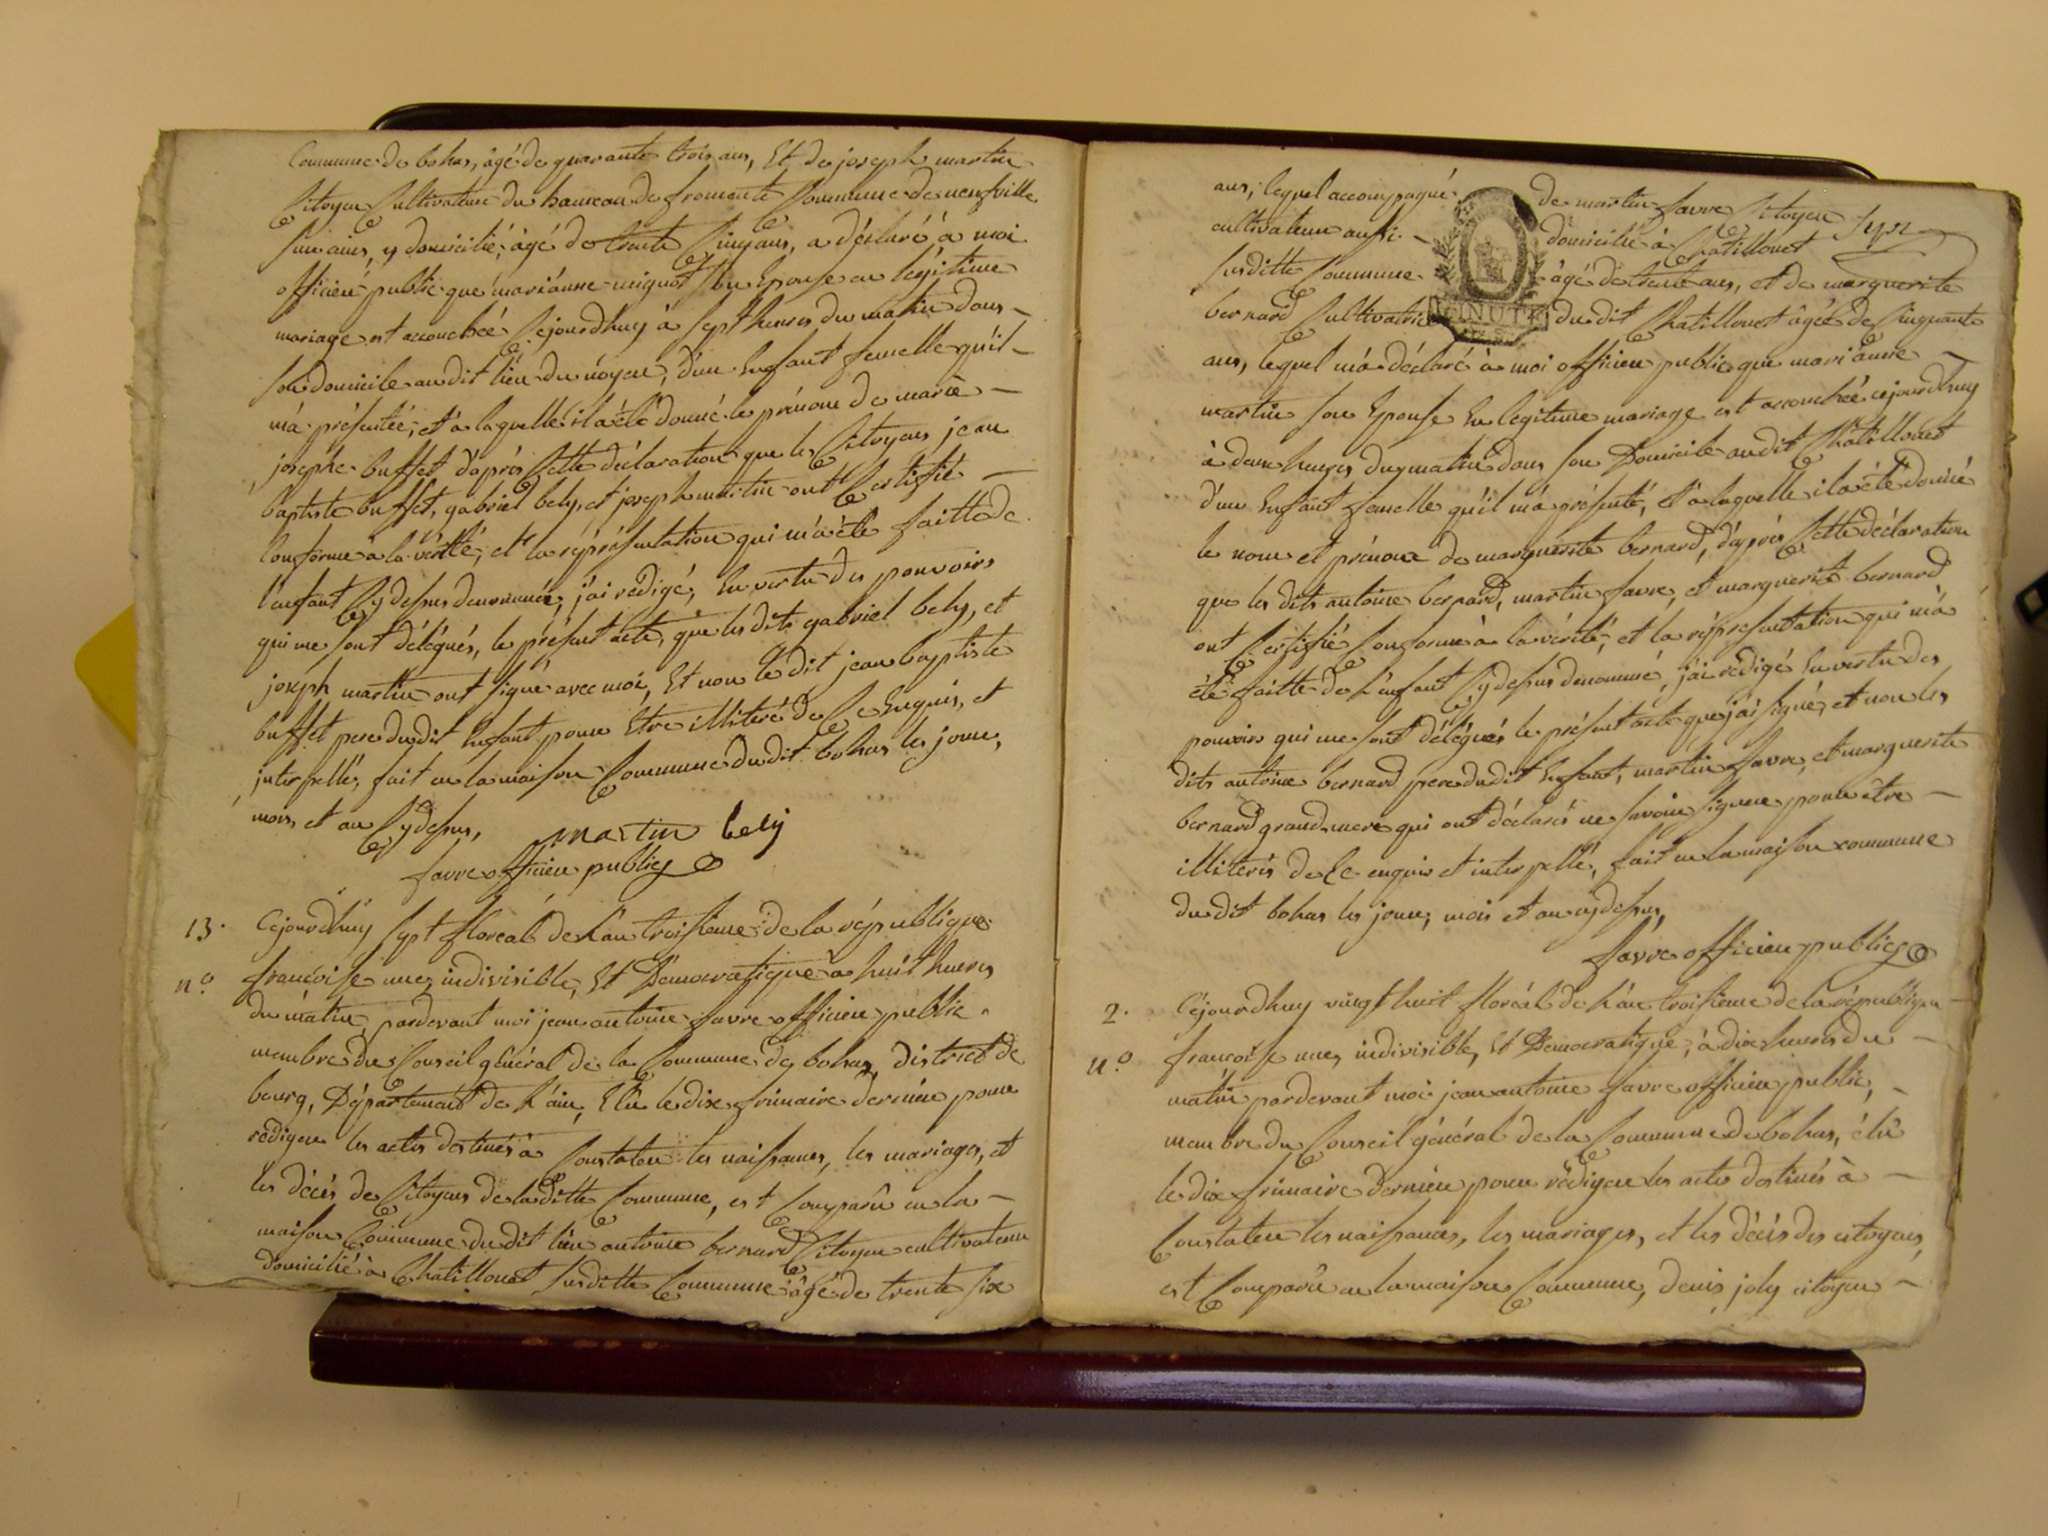 Commune de bohas, âgé de quarante trois ans, Et de joseph martin
Citoyen Cultivateur du hameau de fromente Commune de neufville
sur ains, y domicilié, âgé de trente Cinq ans, a déclaré à moi
officier public que mariánne mignot son Epouse en légitime
mariage est accouchée Cejourdhuy à sept heures du matin dans
son domicile au dit lieu du noyer, d'un Enfant femelle qu'il
m'a présentée, et a laquelle il a été donné le prénom de marie
josephe buffet d'après Cette déclaration que les Citoyens jean
baptiste buffet, gabriel bely, et joseph martin ont Certifié
Conforme à la vérité, et la réprésentation qui m'a été faitte de
l'enfant Cy dessus denommée, j'ai rédigé, En vertu des pouvoirs
qui me sont délégués, le présent acte, que les dits gabriel bely, et
joseph martin ont signé avec moi, Et non le dit jean baptiste
buffet pere du dit Enfant pour Etre illiteré de Ce Enquis, et
interpellé, fait en la maison Commune du dit bohas les jour,
mois et an Cy dessus,
martin bely
favre officier public
13. Cejourdhuy sept floréal de L'an troisieme de la république
n.o françoise une, indivisible, Et Démocratique à huit heures
du matin, pardevant moi jean antoine favre officier public
membre du Conseil général de la Commune de bohas, district de
bourg, Département de L'ain, Elu le dix frimaire dernier pour
rédiger les actes destinés à Constater les naissances, les mariages, et
les décès des Citoyens de la ditte Commune, est Comparû en la
maison Commune du dit lieu antoine bernard Citoyen cultivateur
domicilié à Chatillonet susditte Commune âgé de trente six
ans, lequel accompagné de martin favre Citoyen
cultivateur aussi domicilié à Chatillonet
susditte Commune âgé de trente ans, et de marguerite
bernard Cultivatrice du dit Chatillonet âgée de Cinquante
ans, lequel m'a déclaré à moi officier public que mariánne
martin son Epouse En legitime mariage est accouchée cejourdhuy
à deux heures du matin dans son Domicile au dit Chatillonet
d'un Enfant femelle qu'il m'a présenté, et a laquelle il a été donné
le nom et prénom de marguerite bernard, d'après Cette déclaration
que les dits antoine bernard, martin favre, et marguerite bernard
ont Certifié Conforme à la vérité, et la réprésentation qui m'a
été faitte de L'enfant Cy dessus denommé, j'ai rédigé En vertu des
pouvoirs qui me sont délégués le présent acte que j'ai signé, et non les
dits antoine bernard pere du dit Enfant, martin favre, et marguerite
bernard grand mere qui ont déclarés ne savoir signer pour être
illiterés de Ce enquis et interpellé, fait en la maison commune
du dit bohas les jour, mois et an cy dessus,
favre officier public
2. Cejourdhuy vingt huit floréal de L'an troisieme de la république
n.o françoise une, indivisible, Et Démocratique, à dix heures du
matin pardevant moi jean antoine favre officier public,
membre du Conseil général de la Commune de bohas, élu
le dix frimaire dernier pour rédiger les actes destinés à
Constater les naissances, les mariages, et les décès des citoyens,
est Comparû en la maison Commune, denis joly citoyen